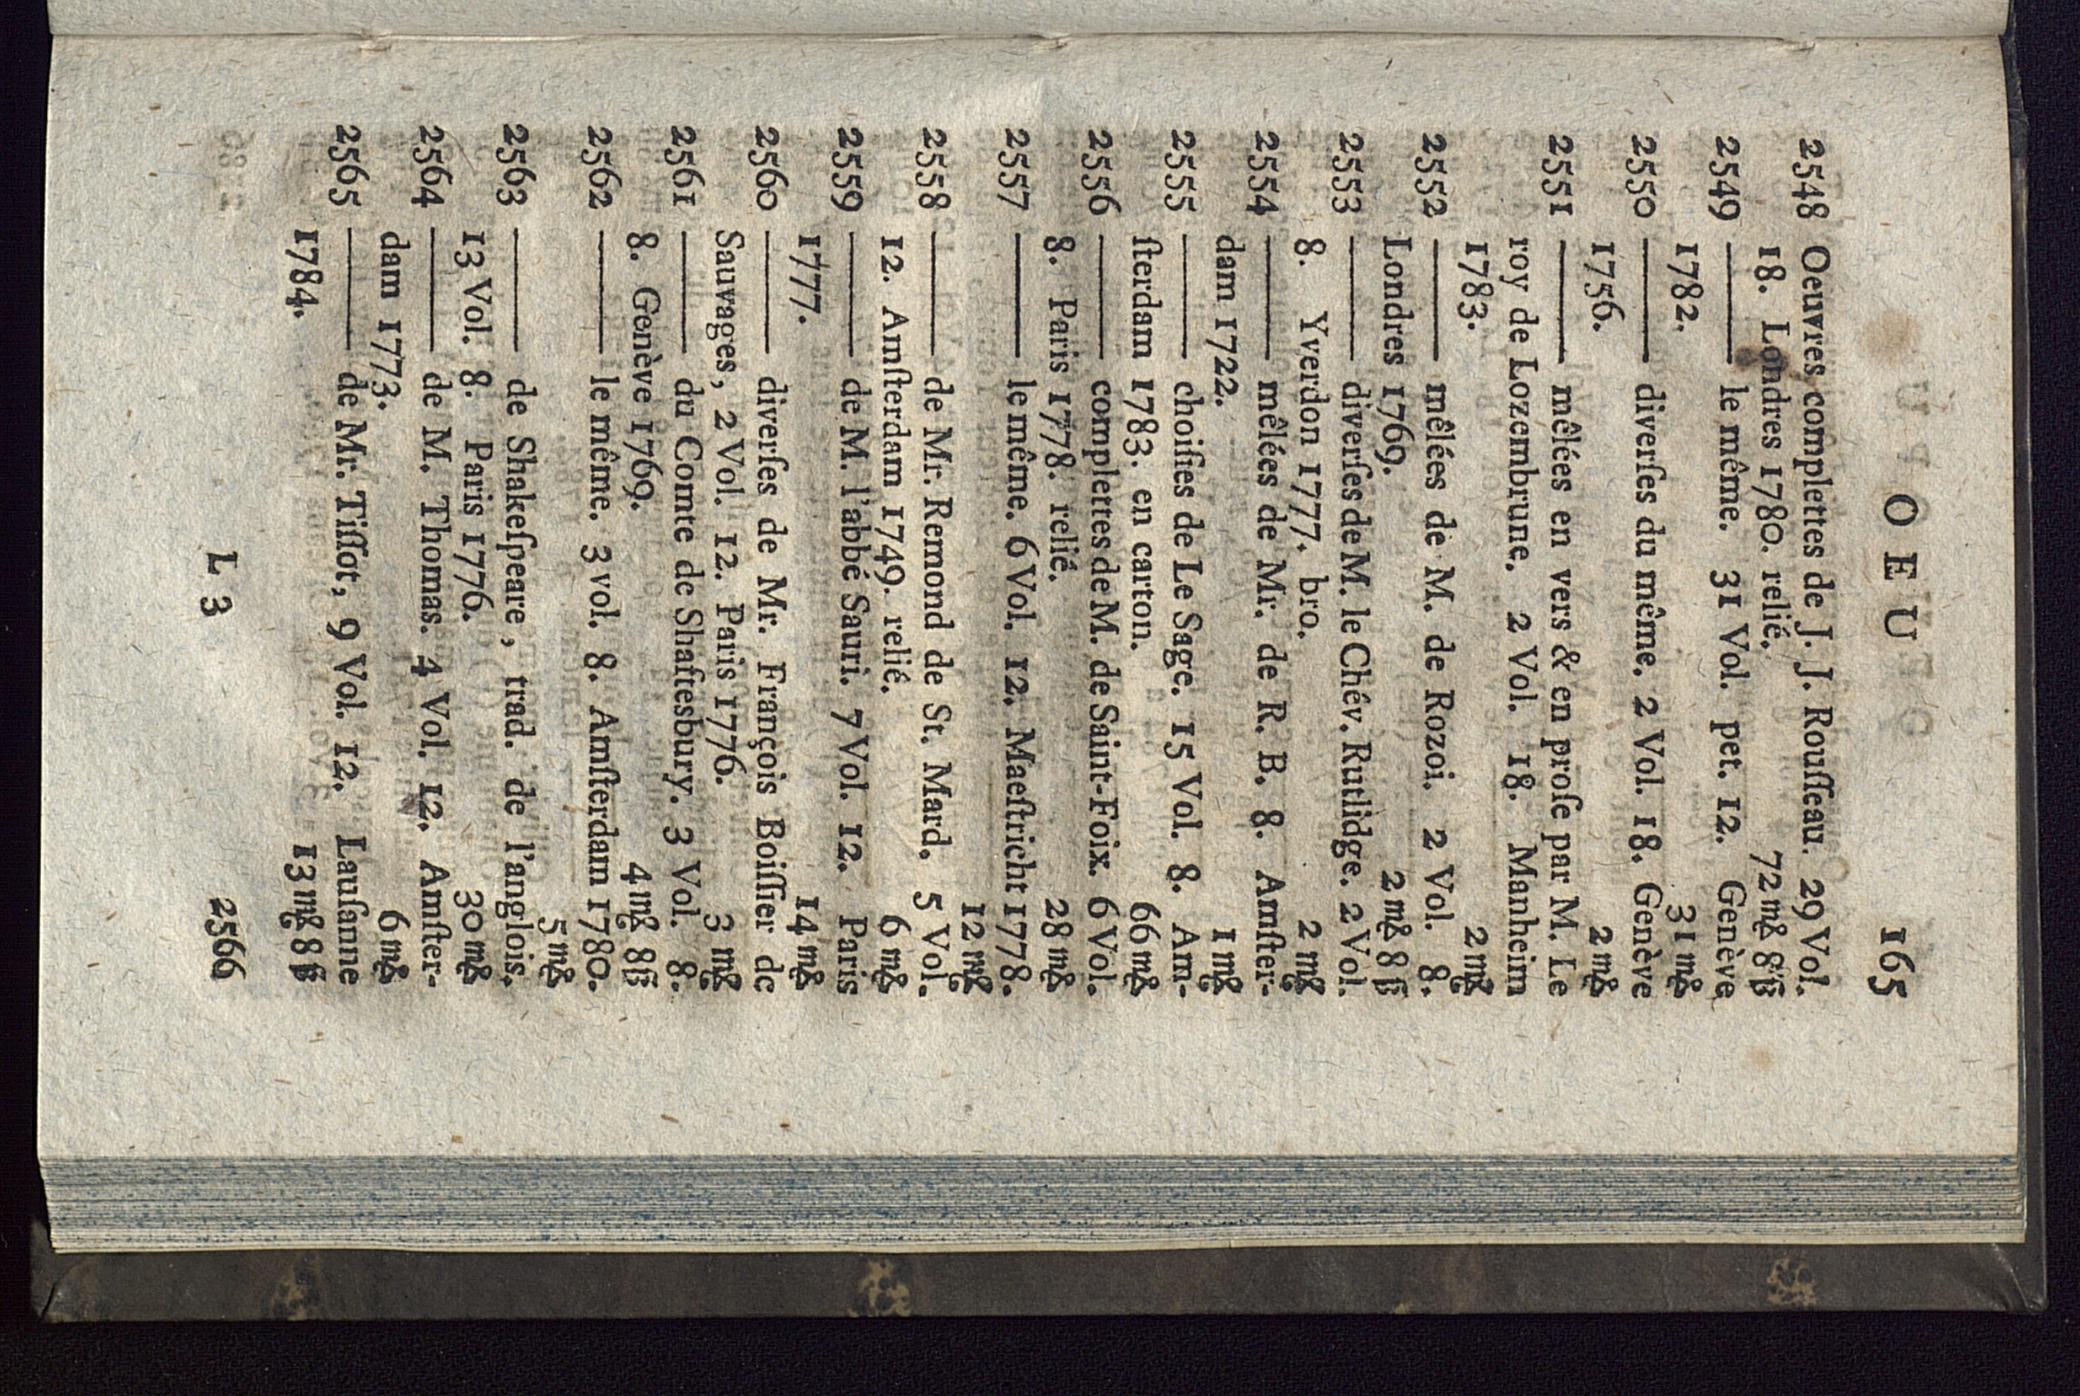 OEU 165
2548 Oeuvres complettes de J. J. Rouſſeau. 29 Vol.
18. Londres 1780. relié. 72 m℔ 8 ß
2549 ——— le même. 31 Vol. pet. 12. Genève
1782. 31 m℔
2550 ——— diverſes du même. 2 Vol. 18. Genève
1756. 2 m℔
2551 ——— mêlées en vers & en proſe par M. Le
roy de Lozembrune. 2 Vol. 18. Manheim
1783. 2 m℔
2552 ——— mêlées de M. de Rozoi. 2 Vol. 8.
Londres 1769. 2 m℔ 8 ß
2553 ——— diverſes de M. le Chév. Rutlidge. 2 Vol.
8. Yverdon 1777. bro. 2 m℔
2554 ——— mêlées de Mr. de R. B. 8. Amſter-
dam 1722. 1 m℔
2555 ——— choiſies de Le Sage. 15 Vol. 8. Am-
ſterdam 1783. en carton. 66 m℔
2556 ——— complettes de M. de Saint-Foix. 6 Vol.
8. Paris 1778. relié. 28 m℔
2557 ——— le même. 6 Vol. 12. Maeſtricht 1778.
12 m℔
2558 ——— de Mr. Remond de St. Mard. 5 Vol.
12. Amſterdam 1749. relié. 6 m℔
2559 ——— de M. l'abbé Sauri. 7 Vol. 12. Paris
1777. 14 m℔
2560 ——— diverſes de Mr. François Boiſſier de
Sauvages, 2 Vol. 12. Paris 1776. 3 m℔
2561 ——— du Comte de Shaftesbury. 3 Vol. 8.
8. Genève 1769. 4 m℔ 8 ß
2562 ——— le même. 3 vol. 8. Amſterdam 1780.
5 m℔
2563 ——— de Shakeſpeare, trad. de l'anglois.
13 Vol. 8. Paris 1776. 30 m℔
2564 ——— de M. Thomas. 4 Vol. 12. Amſter-
dam 1773. 6 m℔
2565 ——— de Mr. Tiſſot, 9 Vol. 12. Lauſanne
1784. 13 m℔ 8 ß
L 3 2566